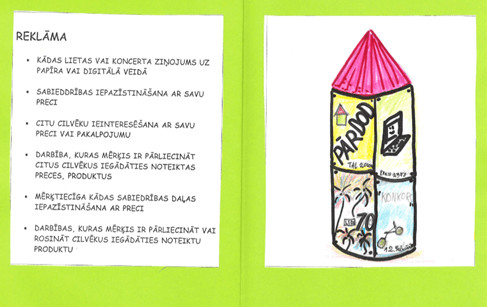 REKLĀMA
• KĀDAS LIETAS VAI KONCERTA ZIŅOJUMS UZ
PAPĪRA VAI DIGITĀLĀ VEIDĀ
• SABIEDDRĪBAS IEPAZĪSTINĀŠANA AR SAVU
PRECI
• CITU CILVĒKU IEINTERESĒŠANA AR SAVU
PRECI VAI PAKALPOJUMU
• DARBĪBA, KURAS MĒRĶIS IR PĀRLIECINĀT
CITUS CILVĒKUS IEGĀDĀTIES NOTEIKTAS
PRECES, PRODUKTUS
• MĒRĶTIECĪGA KĀDAS SABIEDRĪBAS DAĻAS
IEPAZĪSTINĀŠANA AR PRECI
• DARBĪBAS, KURAS MĒRĶIS IR PĀRLIECINĀT VAI
ROSINĀT CILVĒKUS IEGĀDĀTIES NOTEIKTU
PRODUKTU
PĀRDOD
70